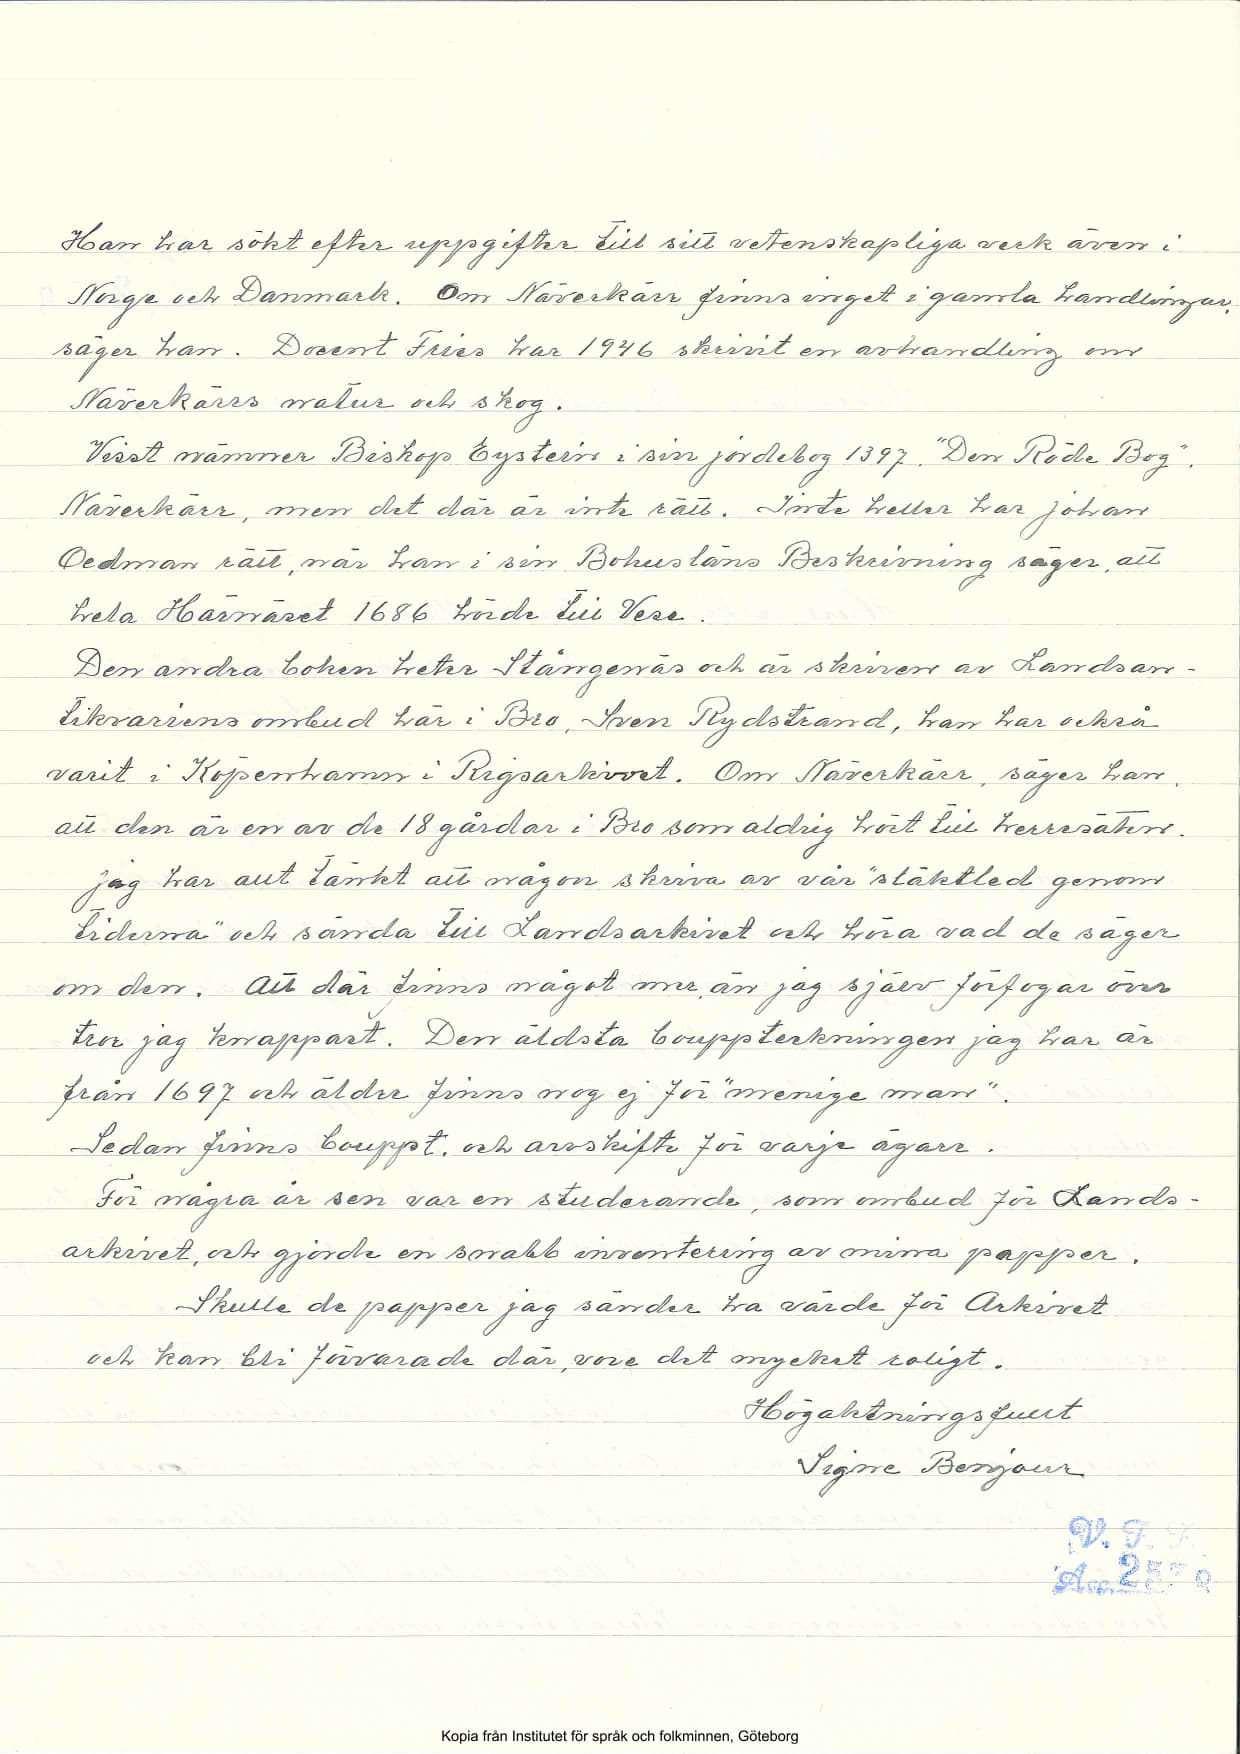 Han har sökt efter uppgifter till sitt vetenskapliga verk även i
Norge och Danmark. Om Näverkärr finns inget i gamla handlingar,
säger han. Docent Fries har 1946 skrivit en avhandling om
Näverkärrs natur och skog.
Visst nämner Biskop Eystein i sin jordebog 1397. "Den Röde Bog".
Näverkärr, men det där är inte rätt. Inte heller har johan
Oedman rätt, när han i sin Bohusläns Beskrivning säger, att
hela Härnäset 1686 hörde till Vese.
Den andra boken heter Stångenäs och är skriven av Landsan-
tikvariens ombud här i Bro, Sven Rydstrand, han har också
varit i Köpenhamn i Rigsarkivet. Om Näverkärr, säger han,
att den är en av de 18 gårdar i Bro som aldrig hört till herresäten.
jag har allt tänkt att någon skriva av vår "släktled genom
tiderna" och sända till Landsarkivet och höra vad de säger
om den. Att där finns något mer, än jag själv förfogar över
tror jag knappast. Den äldsta bouppteckningen jag har är
från 1697 och äldre finns nog ej för "menige man".
Sedan finns bouppt. och arvskifte för varje ägare.
För några år sen var en studerande, som ombud för Lands-
arkivet, och gjorde en snabb inventering av mina papper.
Skulle de papper jag sänder ha värde för Arkivet
och kan bli förvarade där, vore det mycket roligt.
Högaktningsfullt
Signe
V. F.
Acc. 25
Kopia från Institutet för språk och folkminnen, Göteborg